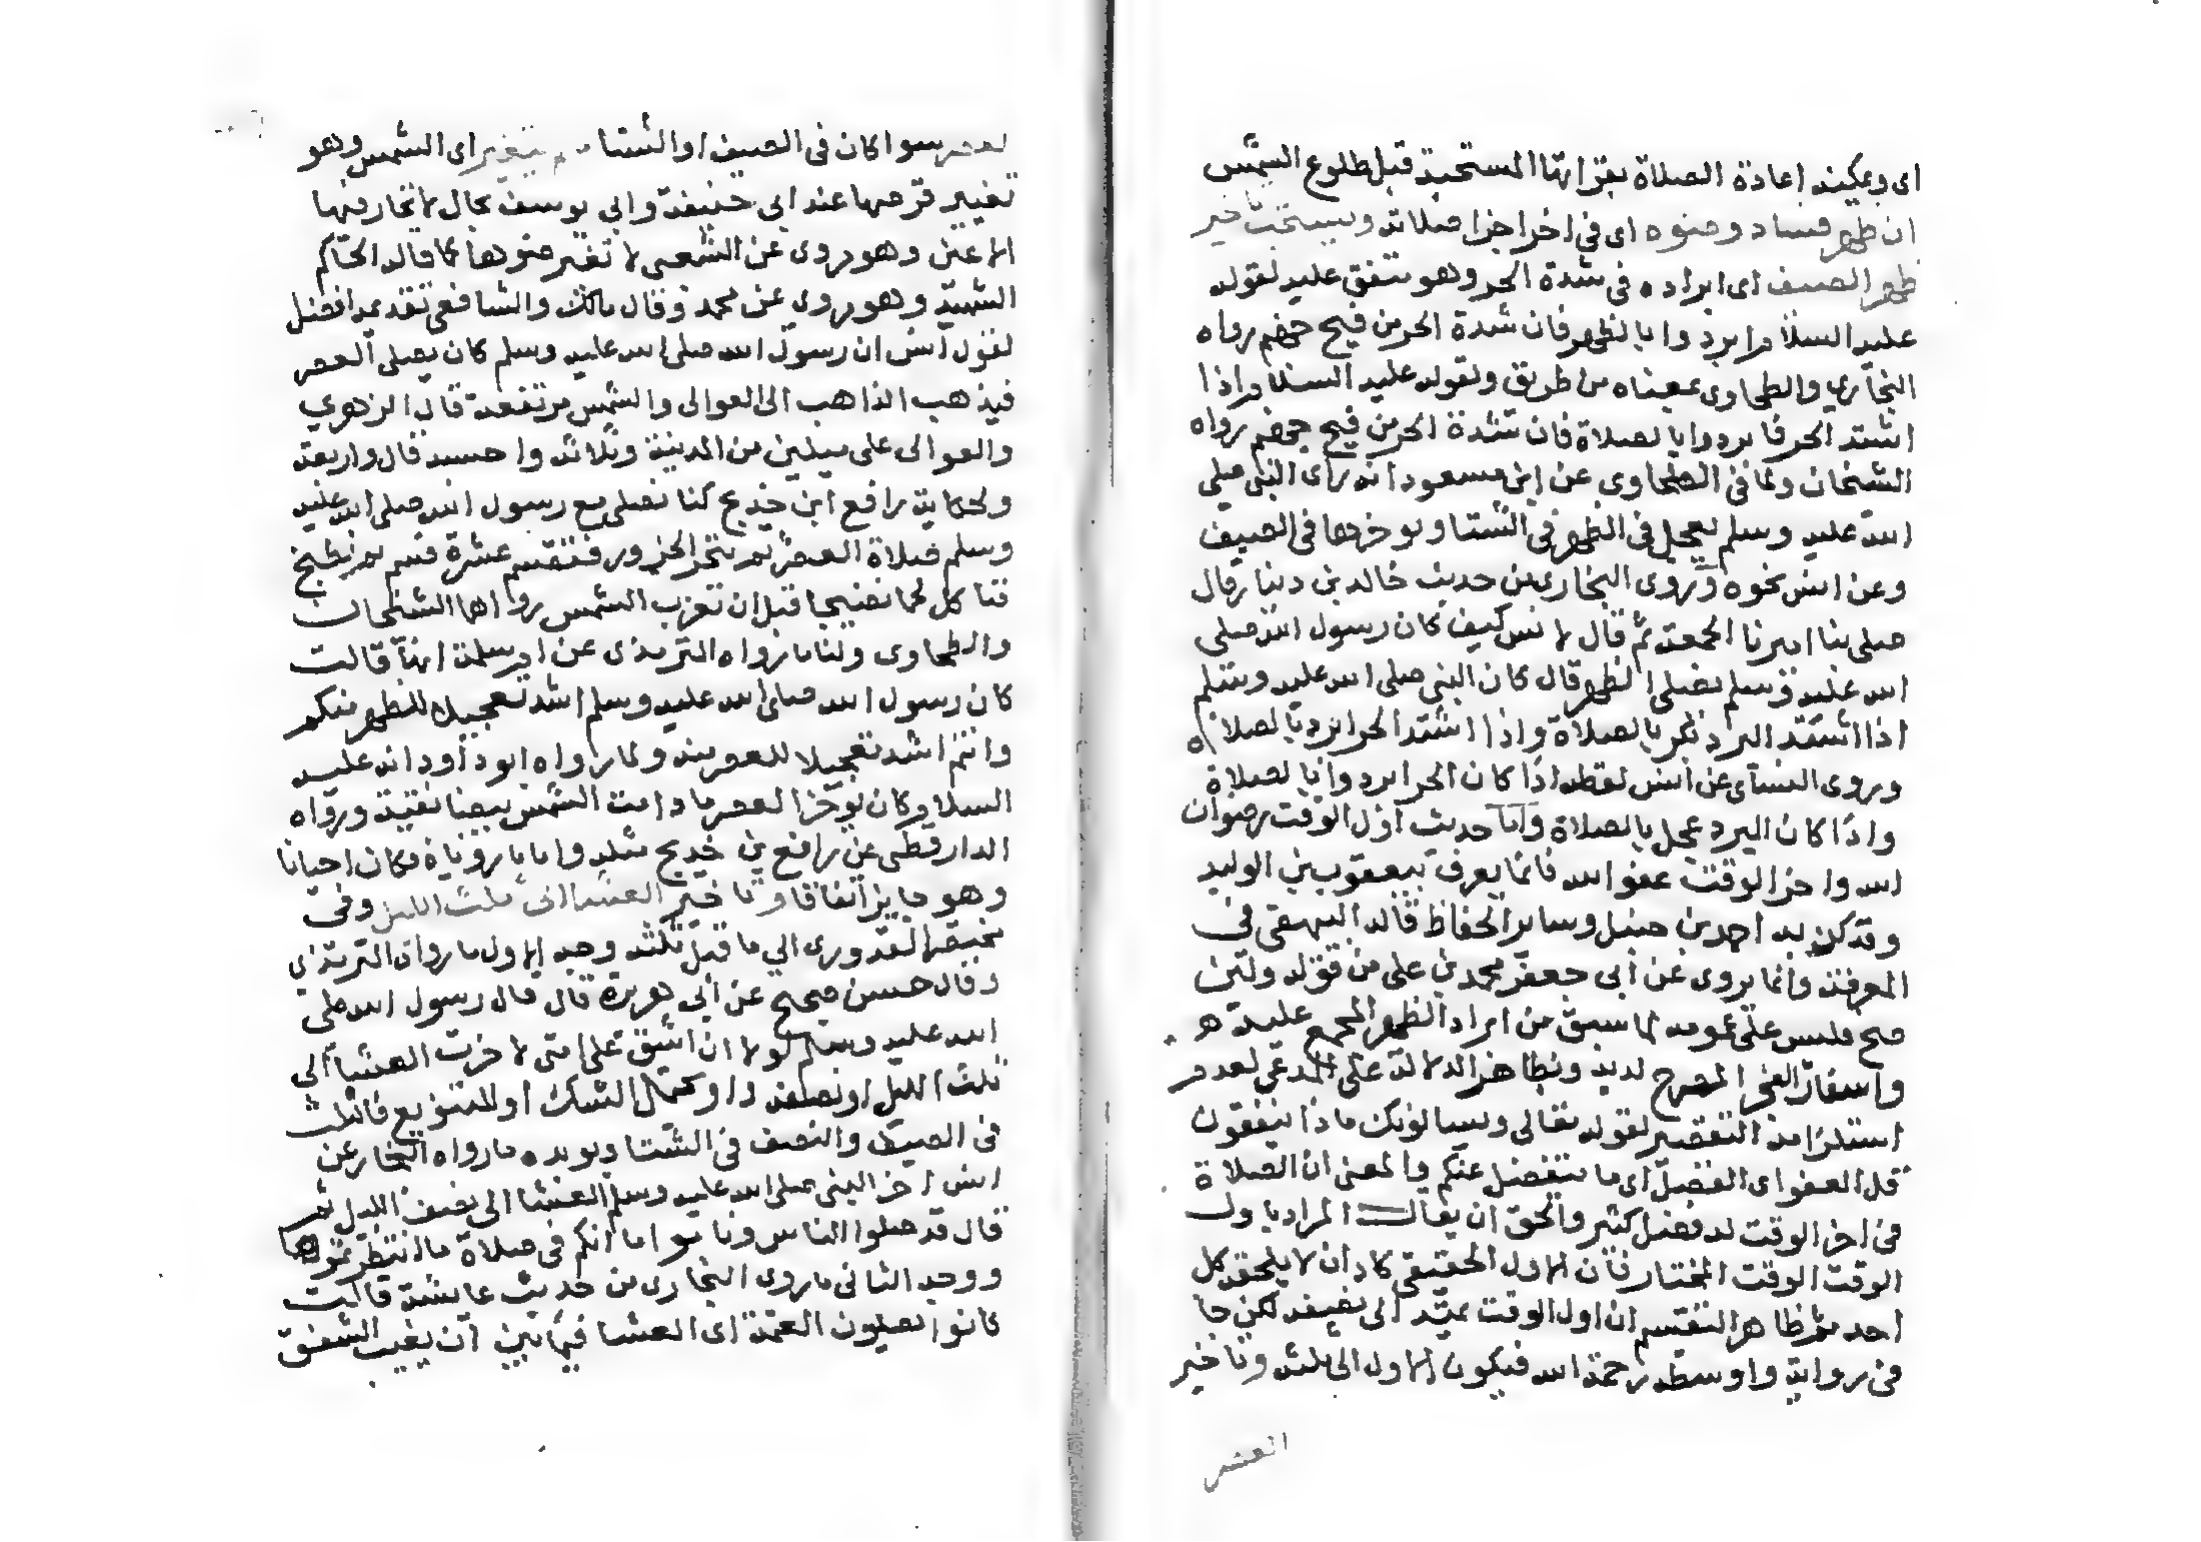 اى ويمكنه اعادة الصلاة بقراتها المستحبة قبل طلوع الشمس
ان ظهر فساد وضوه اى فى اخر اجزا صلاته ويستحب تاخير
ظهر الصيف اى ابراده فى شدة الحر وهو متفق عليه لقوله
عليه السلام ابردوا بالظهر فان شدة الحر من فيح جهنم رواه
البخاري والطحاوى بمعناه من طريق ولقوله عليه السلام اذا
اشتد الحر فابردوا بالصلاة فان شدة الحر من فيح جهنم رواه
الشيخان ولما فى الطحاوى عن ابن مسعود انه راى النبى صلى
الله عليه وسلم يعجل فى الظهر فى الشتا ويوخرها فى الصيف
وعن انس نحوه وروى البخارى من حديث خالد بن دينار قال
صلى بنا اميرنا الجمعة ثم قال لانس كيف كان رسول الله صلى
الله عليه وسلم يصلى الظهر قال كان النبى صلى الله عليه وسلم
اذا اشتد البرد بكر بالصلاة واذا اشتد الحر ابرد بالصلاة
وروى النساى عن انس لفظه اذا كان الحر ابردوا بالصلاة
واذا كان البرد عجل بالصلاة واما حديث اول الوقت رضوان
الله واخر الوقت عفو الله فانما يعرف بيعقوب بن الوليد
وقد كذبه احمد بن حنبل وساير الحفاظ قاله البيهقى فى
المعرفة وانما يروى عن ابى جعفر محمد بن على من قوله ولئن
صح فليس على عمومه لما سبق من ابراد الظهر المجمع عليه
واسفار الفجر المصرح لديه وتظاهر الدلالة على المدعى لعدم
استلزامه التقصير لقوله تعالى ويسالونك ماذا ينفقون
قل العفو اى الفضل اى ما يتفضل عنكم والمعنى ان الصلاة
فى اخر الوقت له فضل كثير والحق ان يقال المراد باول
الوقت الوقت المختار فان الاول الحقيقى كاد ان لا يلحقه كل
احد ثم ظاهر التقسيم ان اول الوقت يمتد الى نصفه لكن جا
فى رواية واوسطه رحمة الله فيكون الاول الى ثلثه وتاخير
العصر
العصر سوا كان فى الصيف او الشتا ما لم يتغير اى الشمس وهو
تغيير قرصها عند ابى حنيفة وابي يوسف بحال لا تحار فيها
الاعين وهو مروى عن الشعبى لا تغير ضوءها كما قاله الحاكم
الشهيد وهو مروي عن محمد وقال مالك والشافعى تقديمه افضل
لقول انس ان رسول الله صلى الله عليه وسلم كان يصلى العصر
فيذهب الذاهب الى العوالى والشمس مرتفعة قال الزهري
والعوالى على ميلين من المدينة وثلاثة واحسبه قال واربعة
ولحكاية رافع ابن خديج كنا نصلى مع رسول الله صلى الله عليه
وسلم صلاة العصر ثم ننحر الجزور فتقسم عشرة قسم ثم نطبخ
فناكل لحما نضيجا قبل ان تغرب الشمس رواها الشيخان
والطحاوى ولنا ما رواه الترمذى عن ام سلمة انها قالت
كان رسول الله صلى الله عليه وسلم اشد تعجيلا للظهر منكم
وانتم اشد تعجيلا للعصر منه ولما رواه ابو داود انه عليه
السلام كان يوخر العصر ما دامت الشمس بيضا نقية ورواه
الدارقطى عن رافع بن خديج مثله واما ما رويناه فكان احيانا
وهو جايز اتفاقا وتاخير العشا الى ثلث الليل وفى
مختصر القدورى الي ما قبل ثلثه وجه الاول ما رواه الترمذي
وقال حسن صحيح عن ابى هريرة قال قال رسول الله صلى
الله عليه وسلم لولا ان اشق على امتى لاخرت العشا الى
ثلث الليل او نصفه واو يحتمل الشك او للتنويع فالثلث
فى الصيف والنصف فى الشتا ويويده ما رواه البخار عن
انس اخر النبى صلى الله عليه وسلم العشا الى نصف الليل ثم
قال قد صلوا الناس وناموا اما انكم فى صلاة ما انتظرتموها
ووجه الثانى ما روى البخارى من حديث عايشة قالت
كانوا يصلون العتمة اى العشا فيما بين ان يغيب الشفق